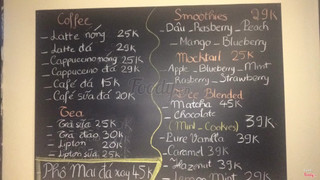 Coffee
- Latte nóng 25K
- Latte đá 29K
- Cappuccino nóng 25K
- Cappuccino đá 29K
- Café đá 15K
- Café sữa đá 20K
Tea
- Trà sữa 25K
- Trà đào 30K
- Lipton 20K
- Lipton sữa 25K
Phô Mai đá xay 45K
Smoothies 29K
- Dâu - Rasberry - Peach
- Mango - Blueberry
Mocktail 25K
- Apple - Blueberry - Mint
- Rasberry - Strawberry
Ice Blended
- Matcha 45K
- Chocolate
(Mint, Cookies) 39K
- Pure Vanilla 39K
- Caramel 39K
- Hazelnut 39K
- Lemon Mint 29K
Foody